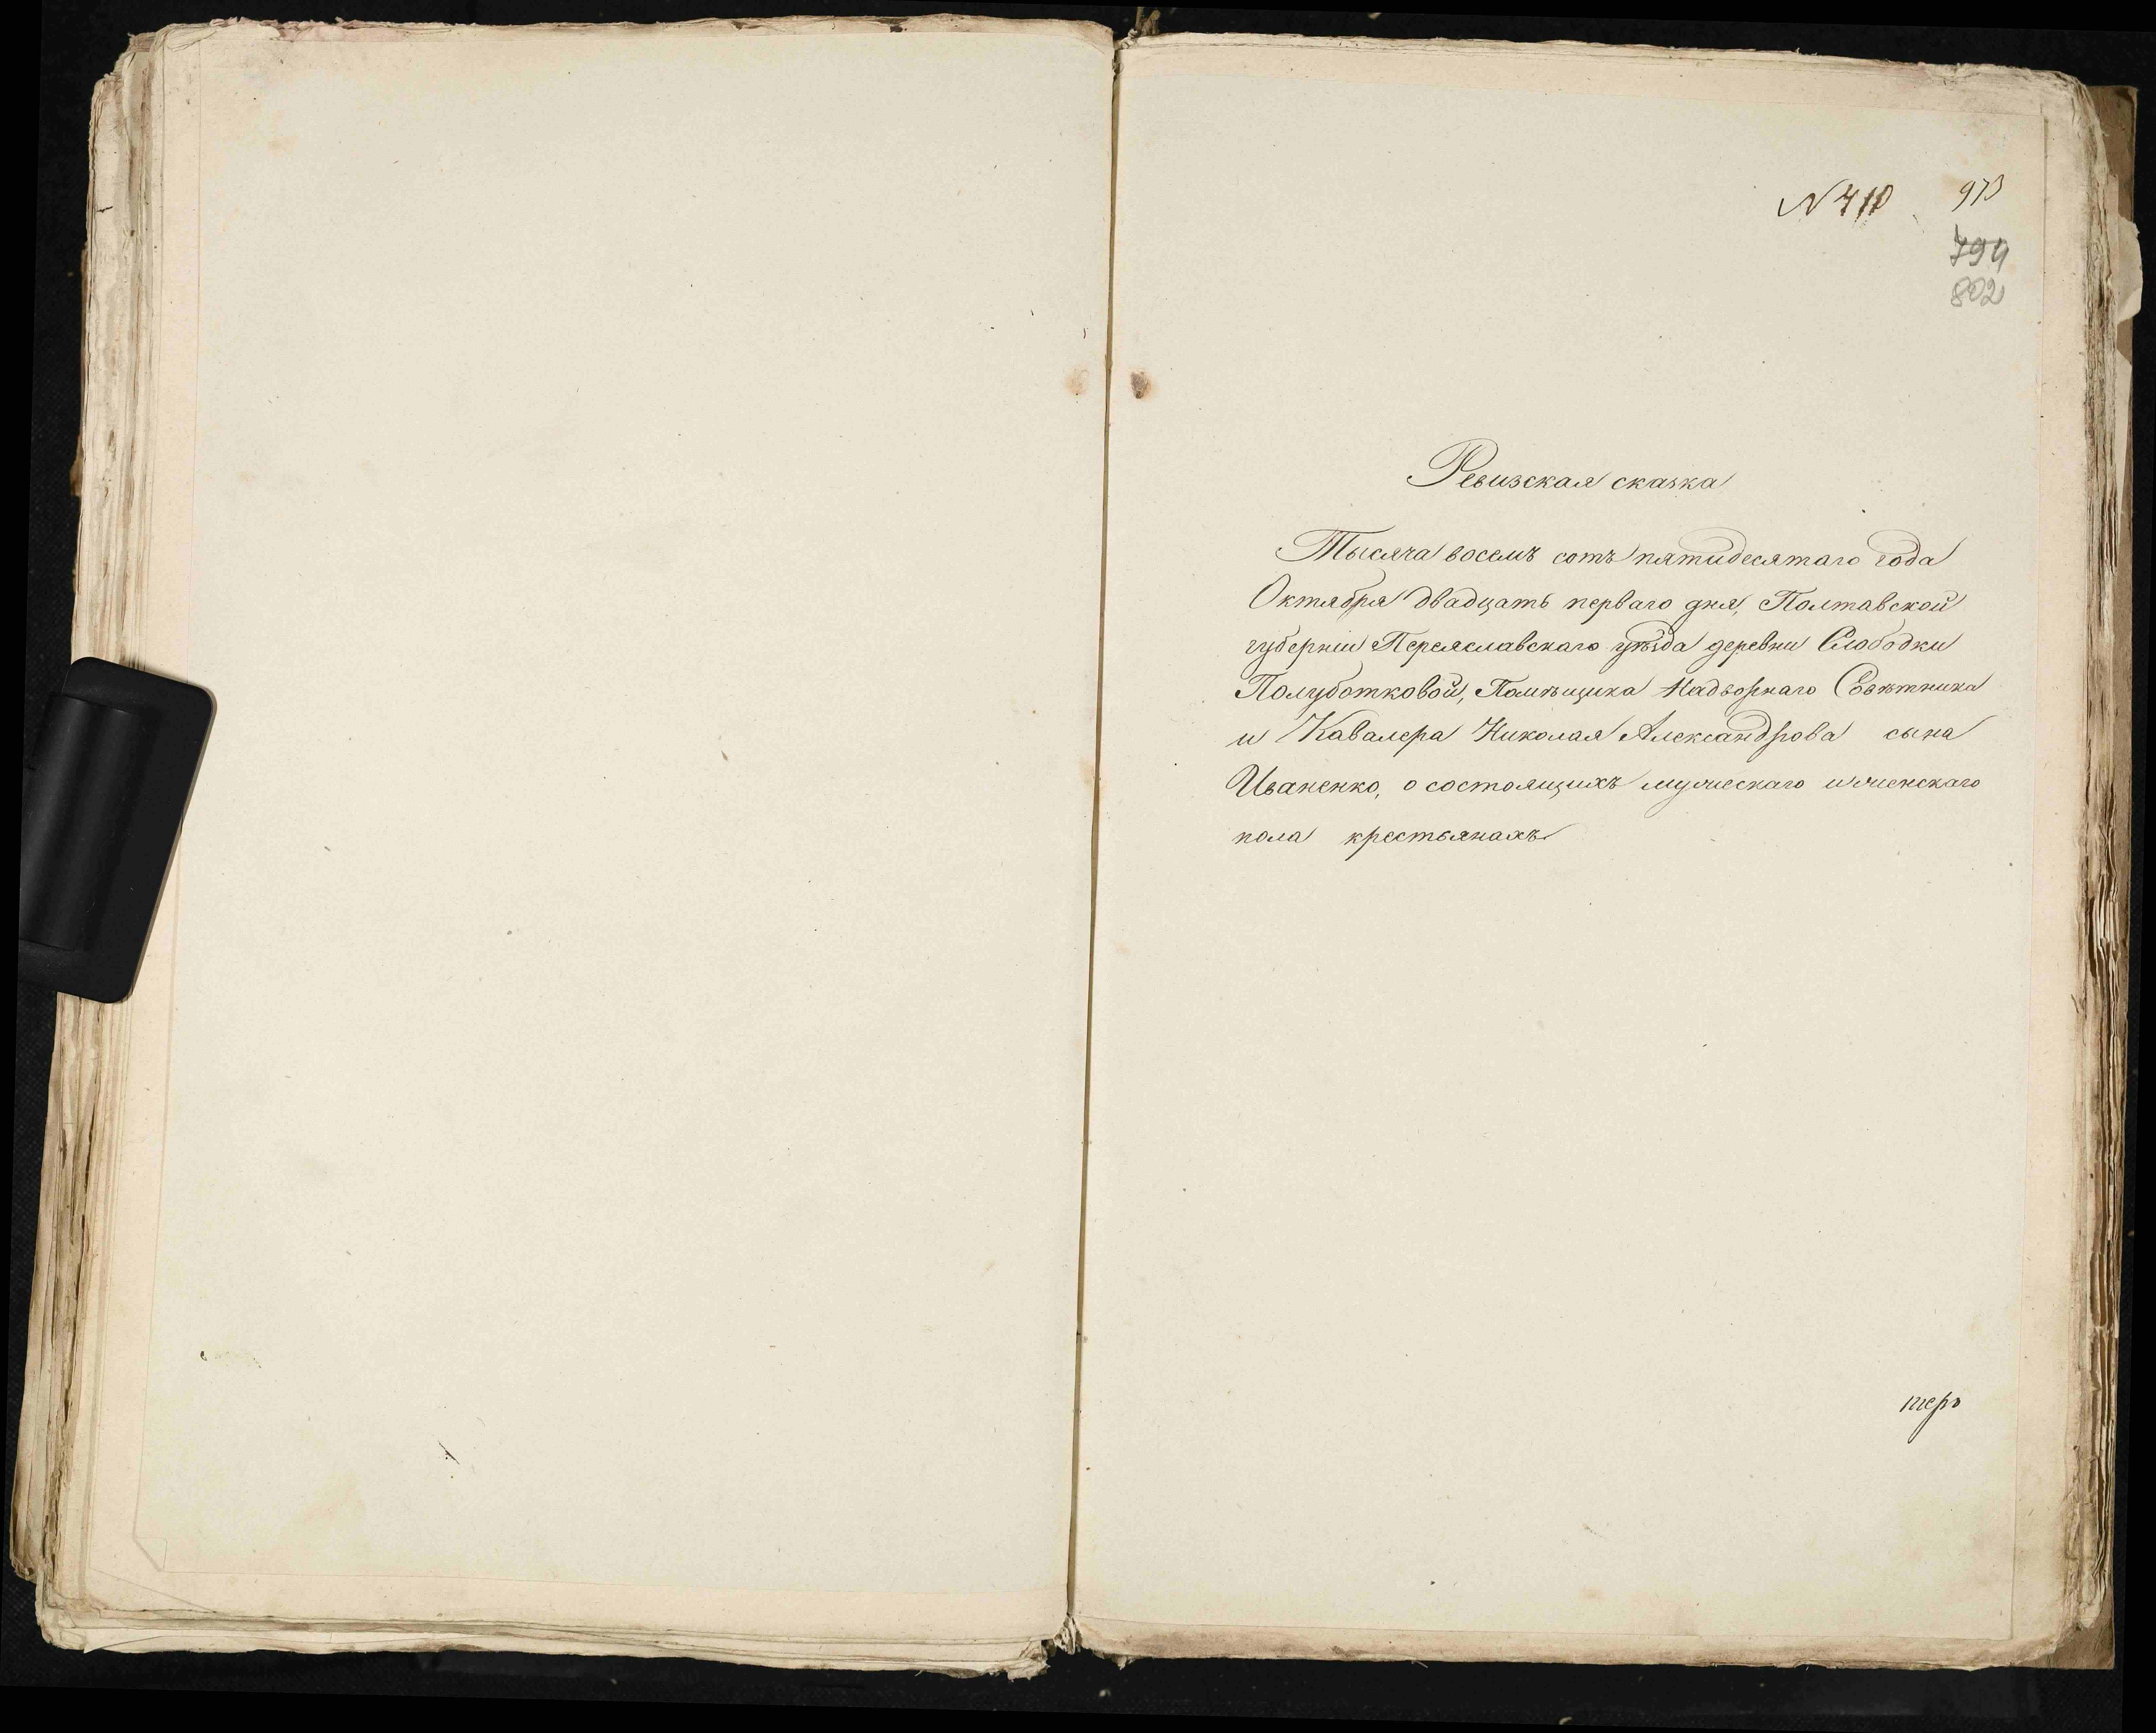 N 410 973
799
802
Ревизская сказка
Тысяча восемъ сотъ пятидесятаго года
Октября двадцать перваго дня, Полтавской
губерніи Переяславскаго уѣзда деревни Слободки
Полуботковой, Помѣщика Надворнаго Совѣтника
и Кавалера Николая Александрова сына
Иваненко, о состоящихъ мужескаго и женскаго
пола крестьянахъ